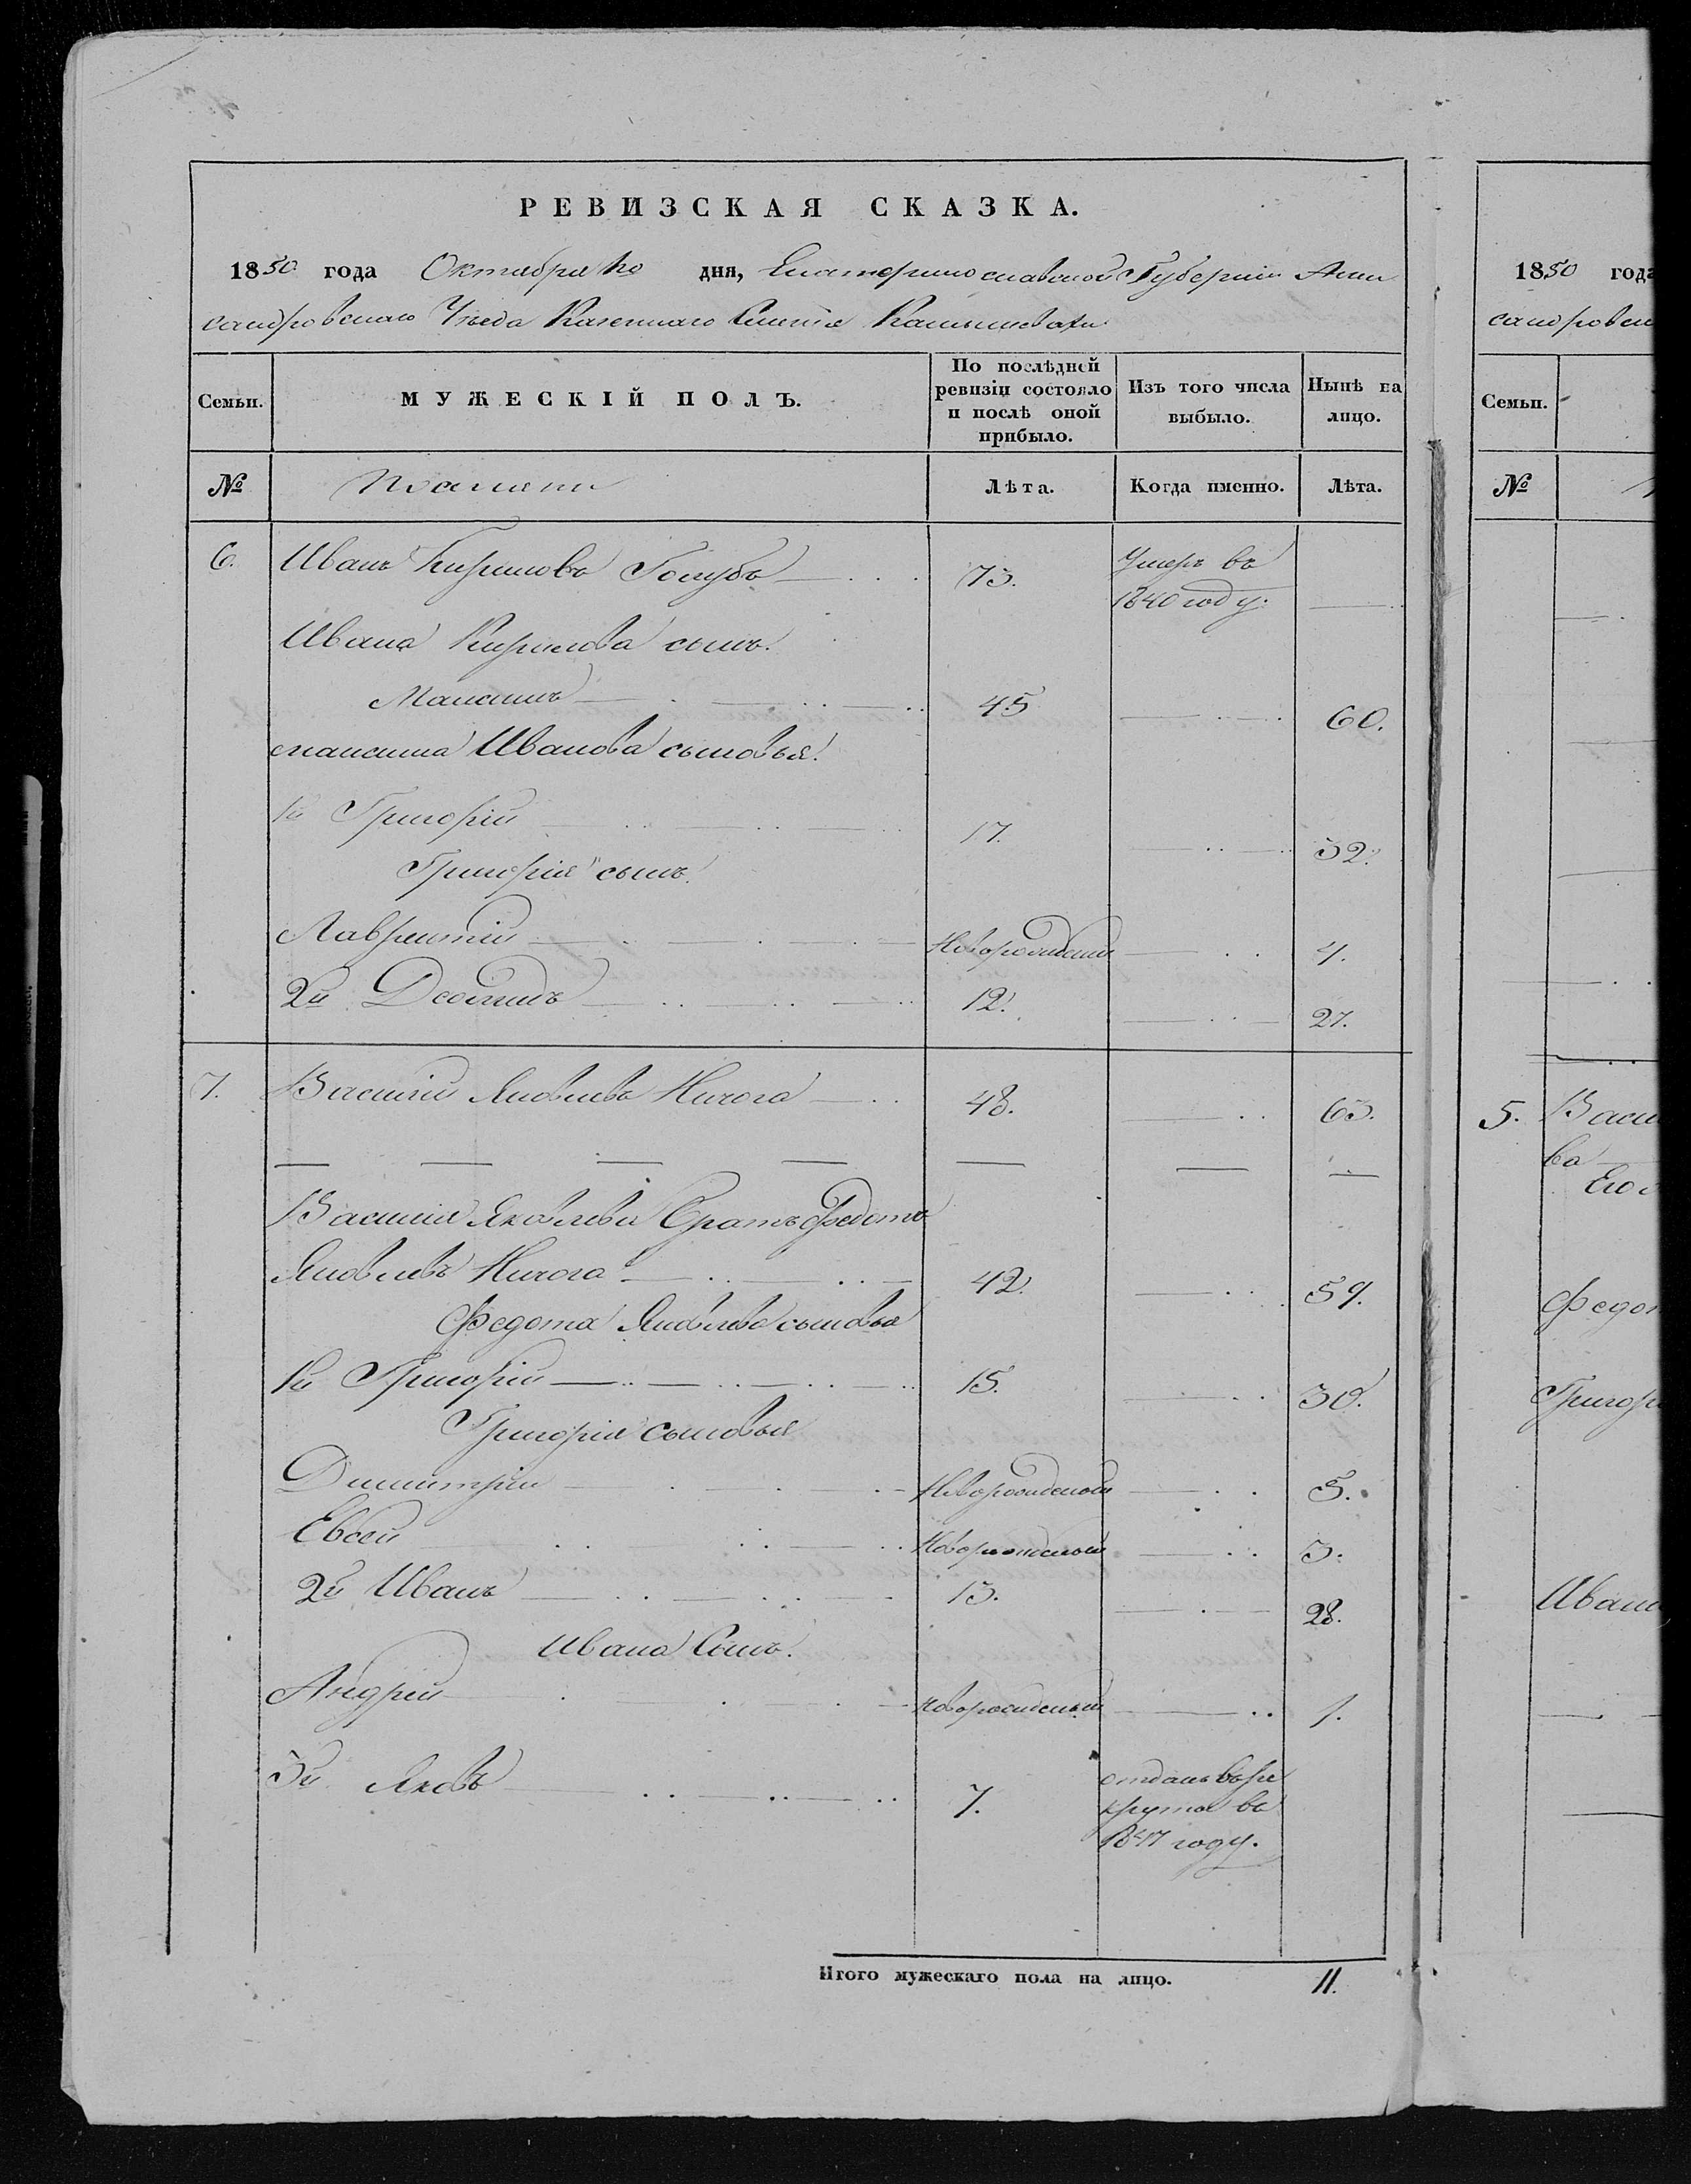 РЕВИЗСКАЯ СКАЗКА.
1850 года Октября дня, Екатеринославской Губернии Алек
сандровскаго Уезда Казеннаго Селенія Камышевахи
Семьи.
МУЖЕСКІЙ ПОЛЪ.
По послѣдней ревизіи состояло и послѣ оной прибыло.
Изъ того числа выбыло.
Нынѣ на лицо.
№
Поселяне
Лѣта.
Когда именно.
Лѣта.
6. Иванъ Кириловъ Голубъ 73. Умеръ въ
1840 году.
Ивана Кирилова сынъ.
Максимъ 45 60.
Максима Иванова сыновья.
1й Григорій 17. 32.
Григорія сынъ.
Лаврентій Новорожденый 4.
2й Леонидъ 12. 27.
7. Василий Яковлевъ Ничога 48. 63.
Василия Яковлева братъ Федотъ
Яковлевъ Ничога 42. 59.
Федота Яковлева сыновья
1й Григорій 15. 30.
Григорія сыновья
Димитрій Новорожденый 5.
Евсей Новорожденый 3.
2й Иванъ 13. 28.
Ивана Сынъ.
Андрей новорожденый 1.
3й Яковъ 7. отданъ въ ре
крута въ
1847 году.
Итого мужескаго пола на лицо. 11.
1850 года
сандровск
Семьи.
№
5. Васи
ва
Его
Федот
Григори
Иван